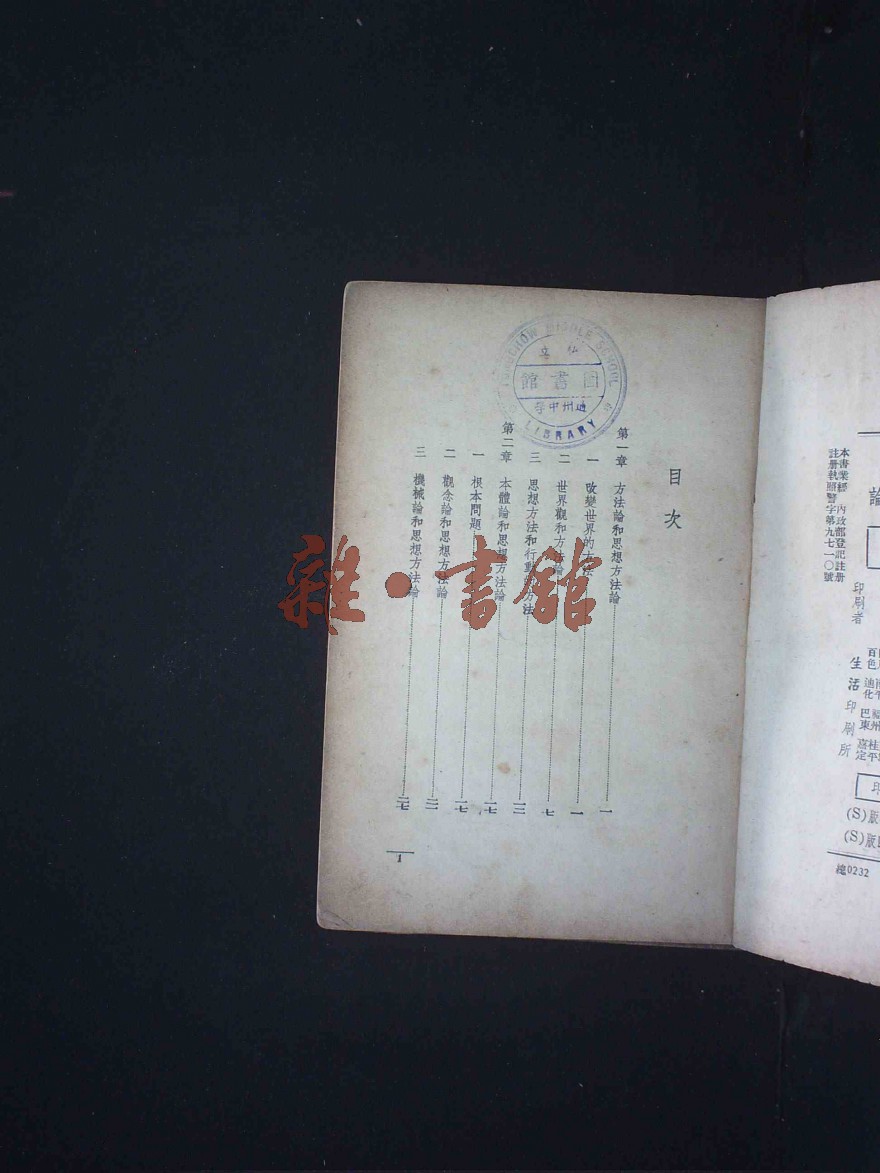 論
本書業經 內政部登記註册
註册執照警字第九七一〇號
印刷者
生活印刷所
(S)版
(S)版
總0232
目次
第一章 方法論和思想方法論 一
一 改變世界的方法 一
二 世界觀和方法論 七
三 思想方法和行動的方法 一二
第二章 本體論和思想方法論 一七
一 根本問題 一七
二 觀念論和思想方法論 二一
三 機械論和思想方法論 二七
1
MIDDLE SCHOOL
圖書館
通州中學
LIBRARY
雜·書館